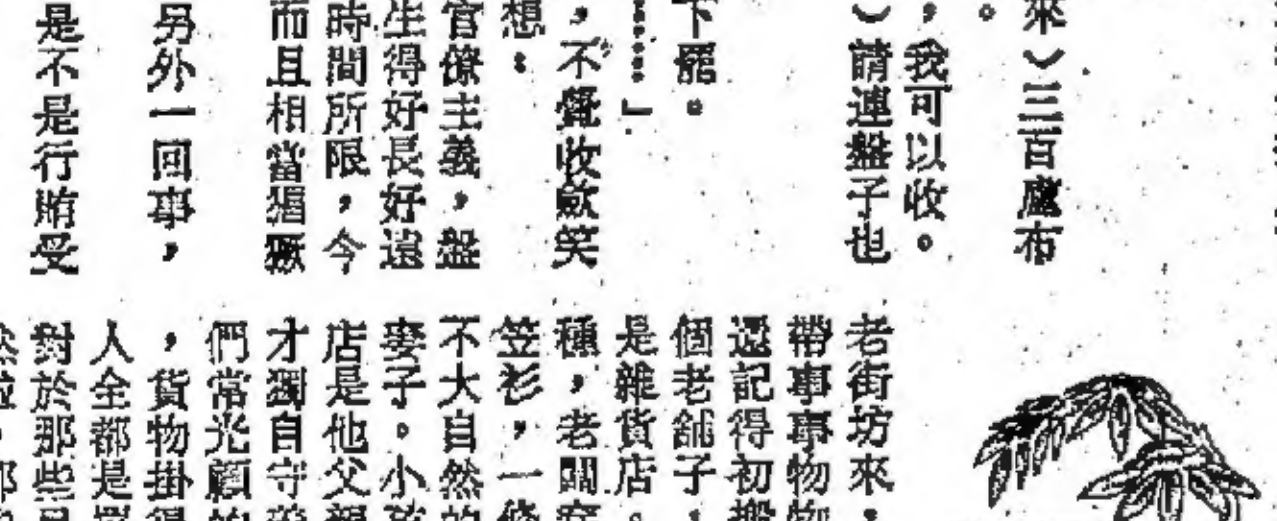 來︶三百盧布
。
，我可以收。
︶請連盤子也
下罷。
……」
，不聲收歛笑
想：
官僚主義，盤
生得好長好遠
時間所限，今
而且相當猖獗
另外一回事，
是不是行賄受
老街坊來，
帶事事物物
還記得初搬
個老舖子，
是雜貨店。
種，老闆
笠衫，一條
不大自然的
妻子。小孩
店是他父親
才獨自守
們常光顧的
，貨物掛得
人全都是
對於那些